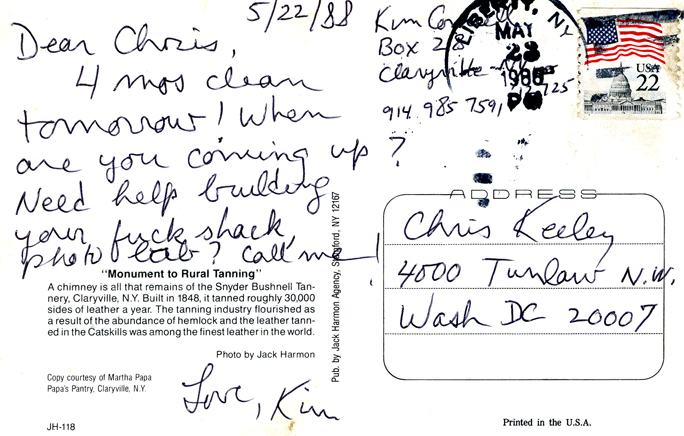 5/22/88
Dear Chris,
4 mos clean
tomorrow! When
are you coming up ?
Need help building
your fuck shack,
photo lab? Call me!
Love, Kim
Kim
Box 218
Claryville NY
12725
914 985 7591
LIBERTY, NY
MAY
23
PM
USA
22
ADDRESS
Chris Keeley
4000 Tunlaw N.W.
Wash DC 20007
"Monument to Rural Tanning"
A chimney is all that remains of the Snyder Bushnell Tan-
nery, Claryville, N.Y. Built in 1848, it tanned roughly 30,000
sides of leather a year. The tanning industry flourished as
a result of the abundance of hemlock and the leather tann-
ed in the Catskills was among the finest leather in the world.
Photo by Jack Harmon
Copy courtesy of Martha Papa
Papa's Pantry, Claryville, N.Y.
JH-118
Pub. by Jack Harmon Agency, NY 12167
Printed in the U.S.A.